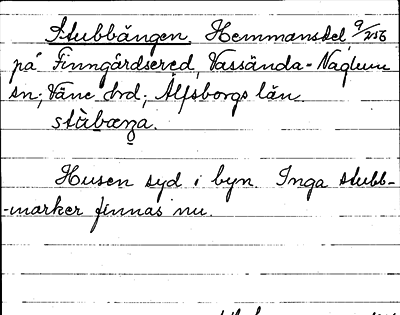 Stubbängen, Hemmansdel 9/256
på Finngårdsered, Vassända-Naglum
sn; Väne hrd; Älfsborgs län.
stùbæŋa.
Husen syd i byn. Inga stubb-
-marker finnas nu.